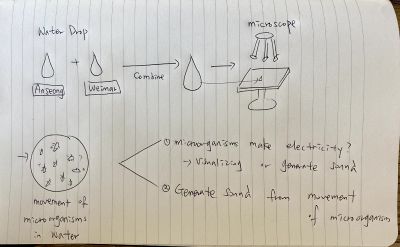 Water Drop
microscope
+
Anseong
Weimar
Combine
① microorganisms make electricity?
→ Visualizing or generate sound
② Generate sound from movement
of microorganism
movement of
microorganisms
in water